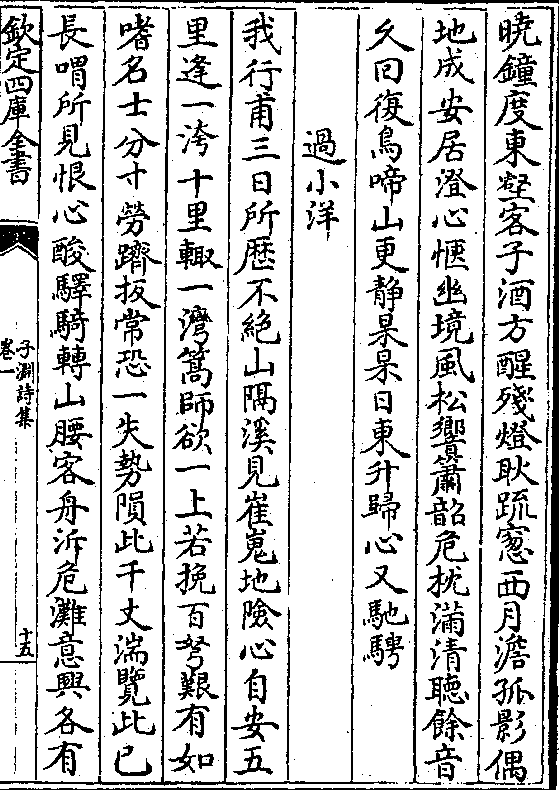 曉鐘度東壑客子酒方醒殘燈耿疏窻西月澹孤影偶
地成安居澄心愜幽境風松響簫韶危枕滿清聽餘音
久回復鳥啼山更静杲杲日東升歸心又馳騁
過小洋
我行甫三日所歴不絶山隔溪見崔嵬地險心自安五
里逢一洿十里輙一灣篙師欲一上若挽百弩艱有如
嗜名士分寸勞躋扳常恐一失勢隕此千丈湍覽此已
長喟所見恨心酸驛騎轉山腰客舟泝危灘意興各有
欽定四庫全書
子淵詩集
卷一
十五